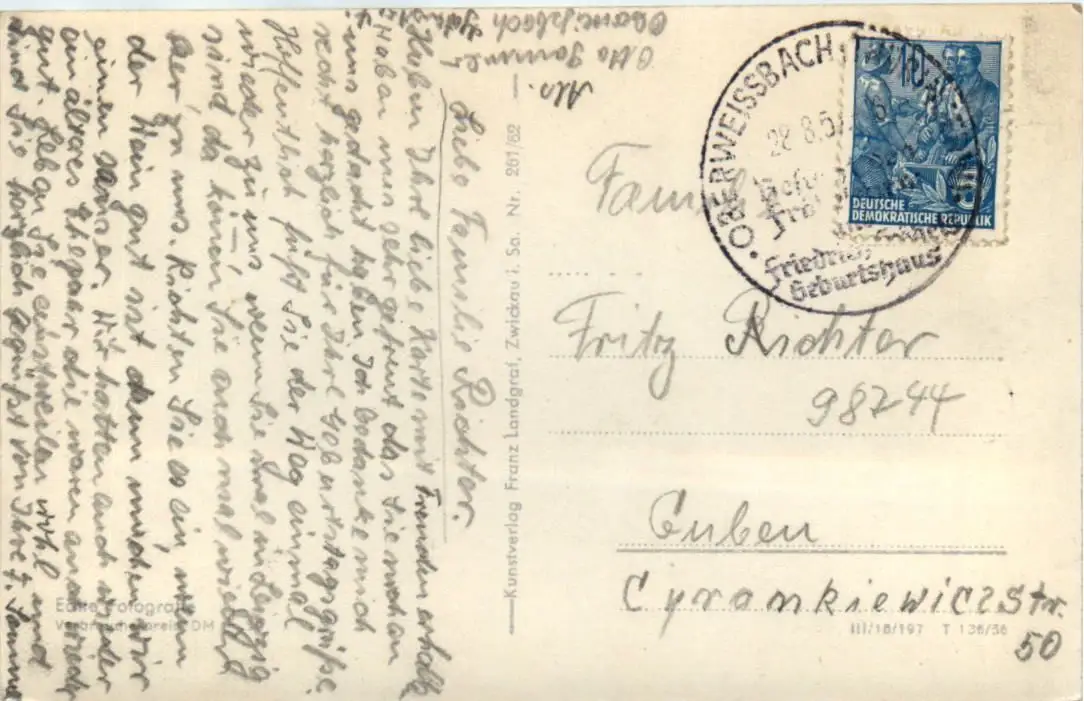 Abs.
Otto
Oberweißbach
Liebe Familie Richter.
Haben Ihre liebe Karte mit Freuden erhalten
Haben uns sehr gefreut das Sie noch an
uns gedacht haben Ich bedanke mich
recht herzlich für Ihre Geburtstagsgrüße
Hoffentlich führt Sie der Weg einmal
wieder zu uns wenn Sie mal in Leipzig
sind da können Sie auch mal wieder
her zu uns. Richten Sie es ein, wenn
der Wein gut ist dann machen wir
einen
Wir hatten auch wieder
ein älteres Ehepaar die waren auch wieder
gut. Leben Sie einstweilen wohl und
sind Sie herzlich gegrüßt von Ihre F.
Echte Fotografie
Verbraucherpreis DM
Kunstverlag Franz Landgraf, Zwickau i. Sa. Nr. 261/62
OBERWEISSBACH
28.8.57
Friedrich
Geburtshaus
DEUTSCHE
DEMOKRATISCHE REPUBLIK
10
Fritz Richter
98744
Guben
Cyrankiewiczstr.
50
III/18/197 T 136/56